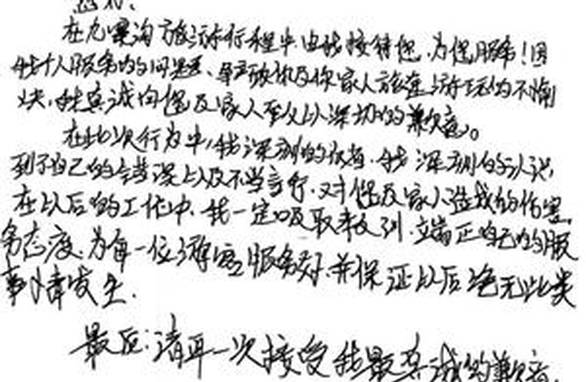 您好:
在九寨沟旅游行程中由我接待您,为您服务!因
我个人服务的问题,导致您及你家人旅途游玩的不愉
快,我真诚向您及家人至以深切的歉意。
在此次行为中,我深刻的反省,我深刻的认识
到了自己的错误以及不当言行,对您及家人造成的伤害
在以后的工作中,我一定吸取教训,立端正自己的服
务态度,为每一位游客服务好,并保证以后绝无此类
事情发生。
最后:请再一次接受我最真诚的歉意。